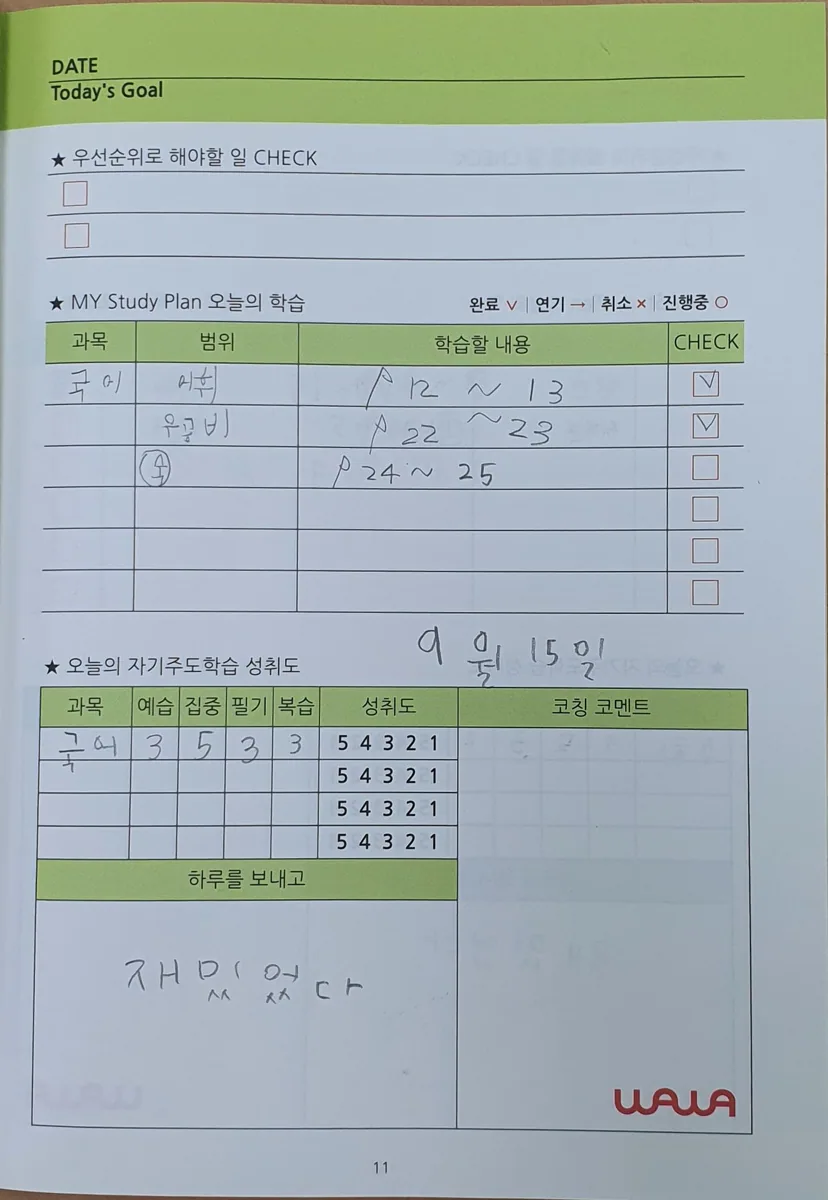 DATE
Today's Goal
★ 우선순위로 해야할 일 CHECK
★ MY Study Plan 오늘의 학습 완료 ∨ | 연기 → | 취소 × | 진행중 ○
과목 범위 학습할 내용 CHECK
국어 어휘 p 12 ~ 13 ✓
우공비 p 22 ~ 23 ✓
p 24 ~ 25
9월 15일
★ 오늘의 자기주도학습 성취도
과목 예습 집중 필기 복습 성취도 코칭 코멘트
국어 3 5 3 3 5 4 3 2 1
5 4 3 2 1
5 4 3 2 1
5 4 3 2 1
하루를 보내고
재밌었다
WAWA
11